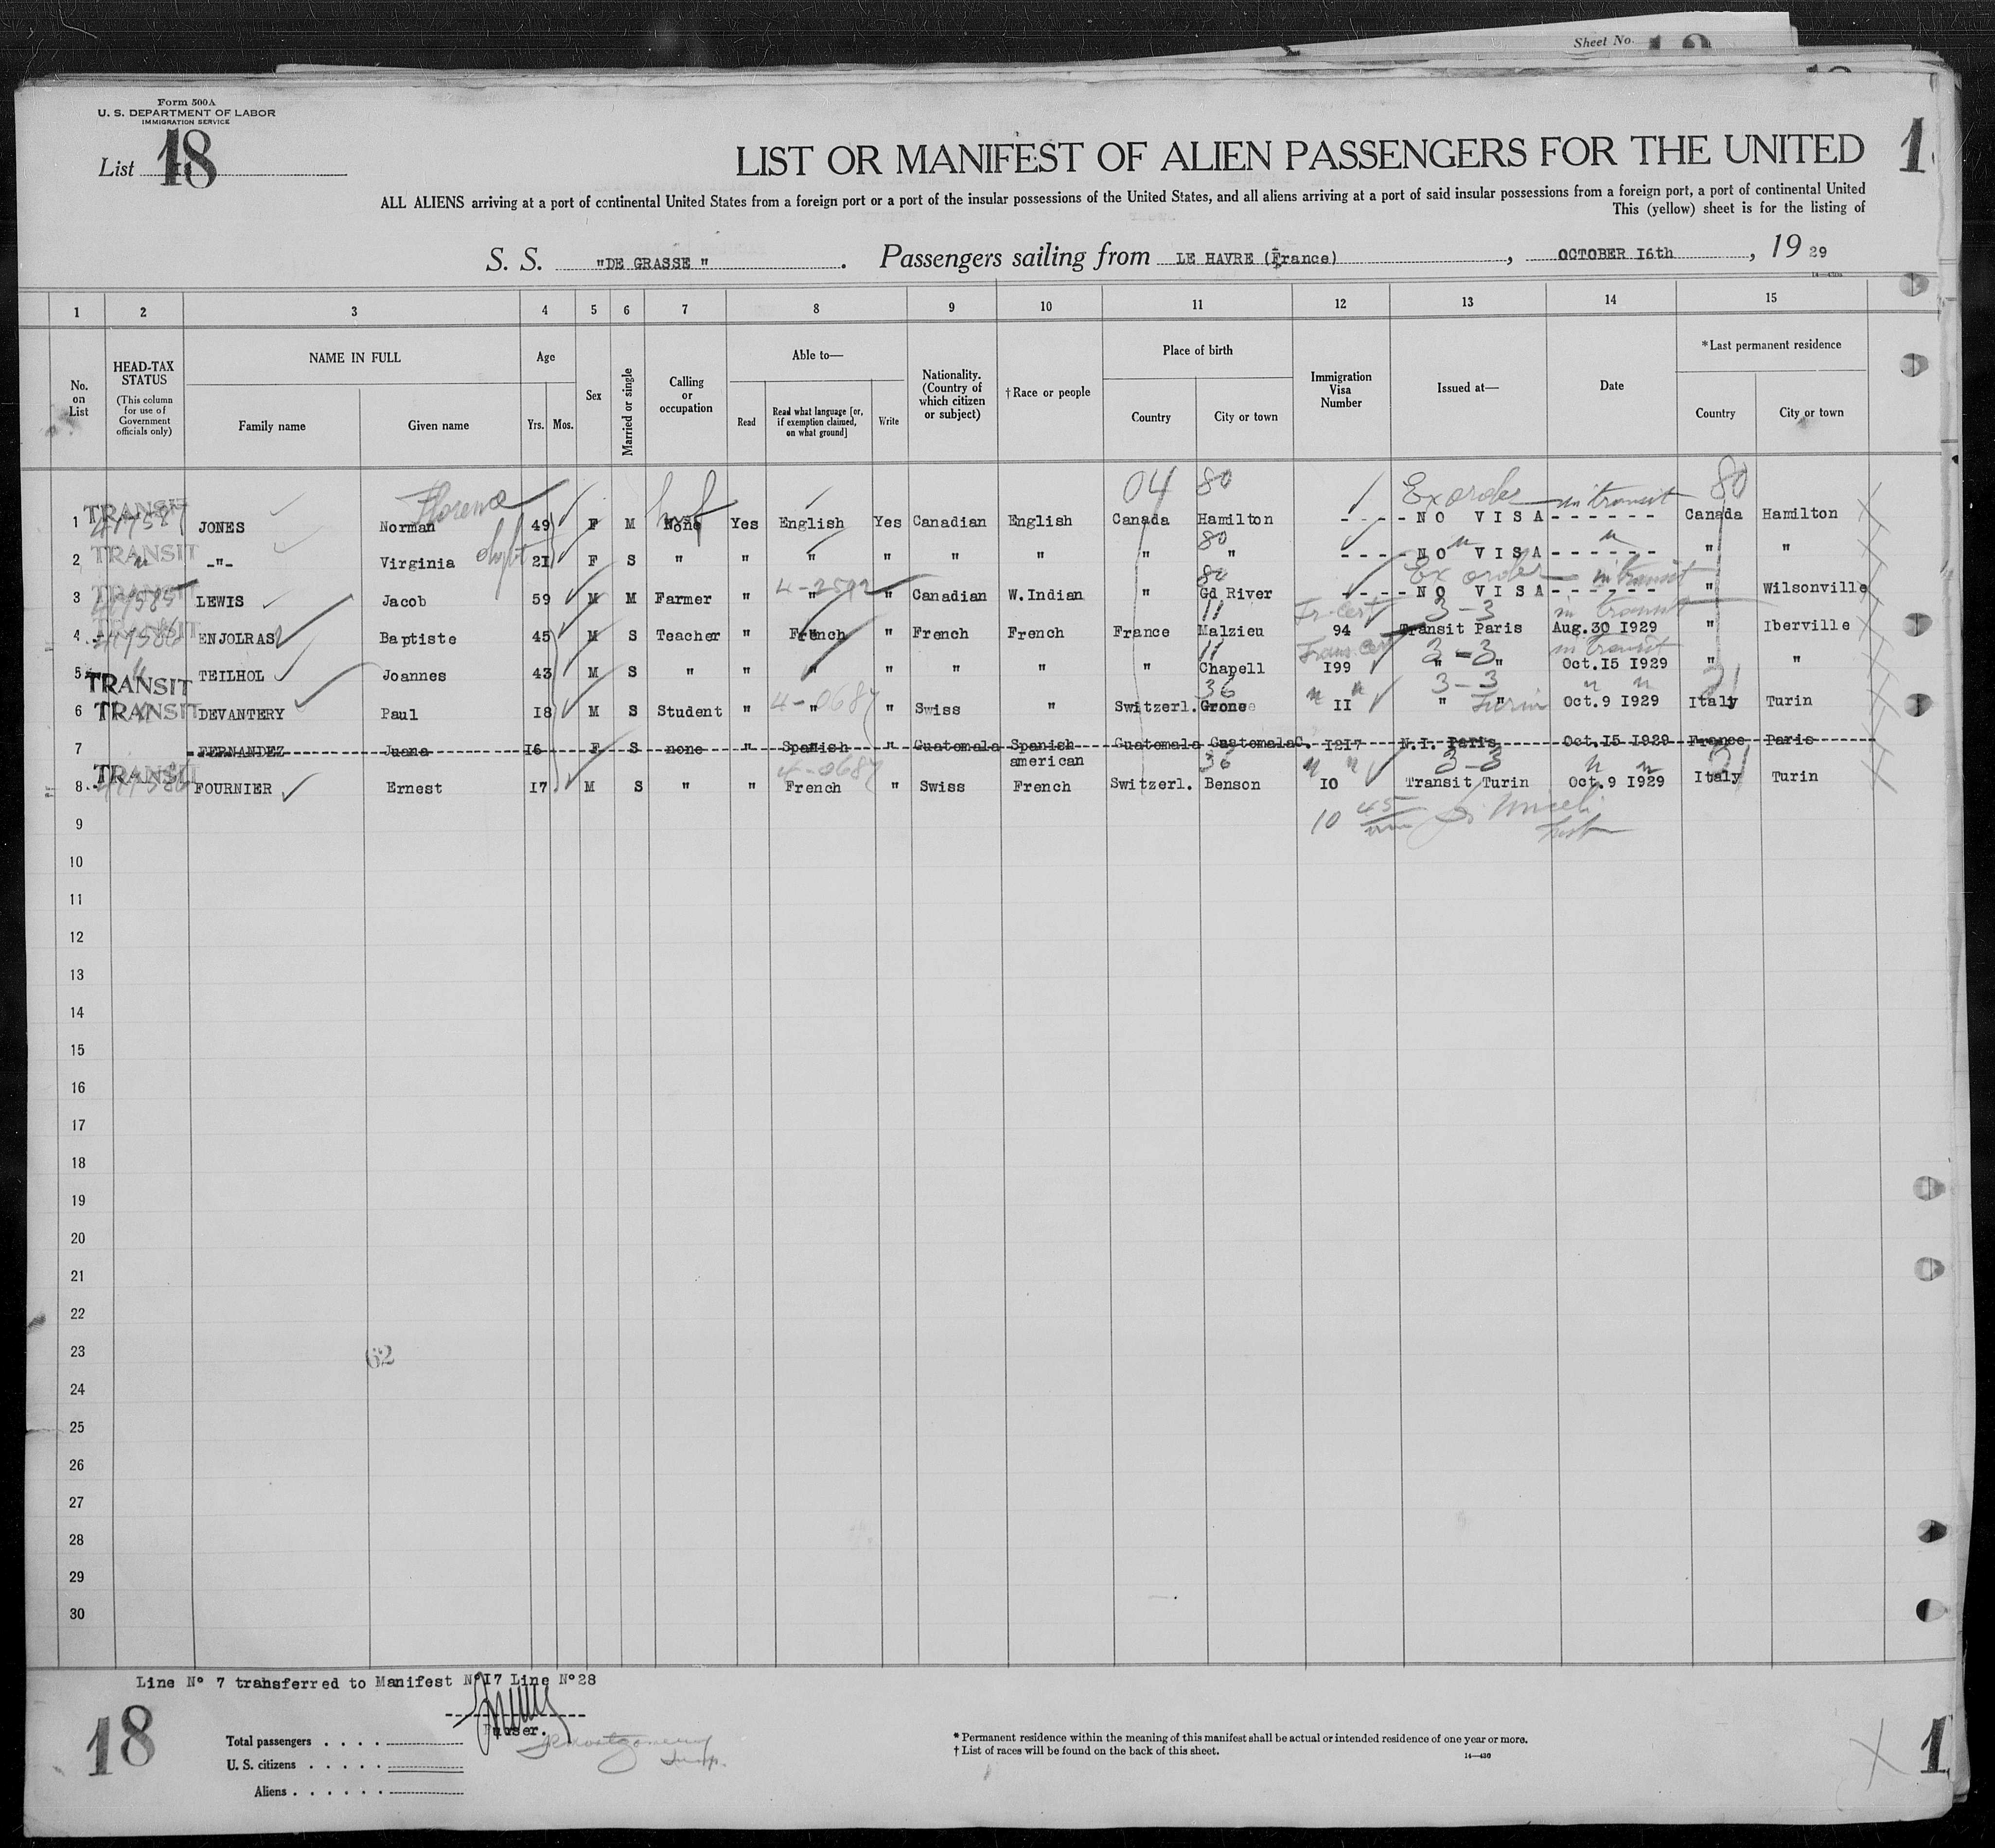 Sheet No.
Form 500A
U. S. DEPARTMENT OF LABOR
IMMIGRATION SERVICE
List 18
LIST OR MANIFEST OF ALIEN PASSENGERS FOR THE UNITED
1
ALL ALIENS arriving at a port of continental United States from a foreign port or a port of the insular possessions of the United States, and all aliens arriving at a port of said insular possessions from a foreign port, a port of continental United
This (yellow) sheet is for the listing of
S. S. "DE GRASSE". Passengers sailing from LE HAVRE (France), OCTOBER I6th, 19 29
1 2 3 4 5 6 7 8 9 10 11 12 13 14 15
No. on List
HEAD-TAX STATUS
(This column for use of Government officials only)
NAME IN FULL
Family name
Given name
Age
Yrs. Mos.
Sex
Married or single
Calling or occupation
Able to—
Read
Read what language [or, if exemption claimed, on what ground]
Write
Nationality. (Country of which citizen or subject)
†Race or people
Place of birth
Country
City or town
Immigration Visa Number
Issued at—
Date
*Last permanent residence
Country
City or town
Florence
04 80 Ex order in transit 80
1 TRANSIT JONES Norman 49 F M None Yes English Yes Canadian English Canada Hamilton - - - - NO VISA - - - - - - Canada Hamilton
80
2 TRANSIT -"- Virginia 21 F S " " " " " " " " - - - - NO VISA - - - - - - " "
4-2592 80 Ex order in transit
3 TRANSIT LEWIS Jacob 59 M M Farmer " " " Canadian W.Indian " Gd River - - - - NO VISA - - - - - - " Wilsonville
11 Tr. Cert 3-3 in transit
4 TRANSIT ENJOLRAS Baptiste 45 M S Teacher " French " French French France Malzieu 94 Transit Paris Aug.30 I929 " Iberville
11 Trans. Cert 3-3 in transit
5 TEILHOL Joannes 43 M S " " " " " " " Chapell I99 " " Oct.I5 I929 " "
TRANSIT 36 " " 3-3 " "
6 TRANSIT DEVANTERY Paul I8 M S Student " 4-0687 " " Swiss " Switzerl. Grone II " Turin Oct.9 I929 Italy Turin
7 FERNANDEZ Juana I6 F S none " Spanish " Guatemala Spanish american Guatemala Guatemala C. I2I7 N.I. Paris Oct.I5 I929 France Paris
4-0687 36 " " 3-3 " "
8 TRANSIT FOURNIER Ernest I7 M S " " French " Swiss French Switzerl. Benson IO Transit Turin Oct.9 I929 Italy Turin
9 10 45
10
11
12
13
14
15
16
17
18
19
20
21
22
23 62
24
25
26
27
28
29
30
Line N° 7 transferred to Manifest N°I7 Line N°28
Purser.
18
Total passengers
U. S. citizens
Aliens
* Permanent residence within the meaning of this manifest shall be actual or intended residence of one year or more.
† List of races will be found on the back of this sheet.
14—430
1